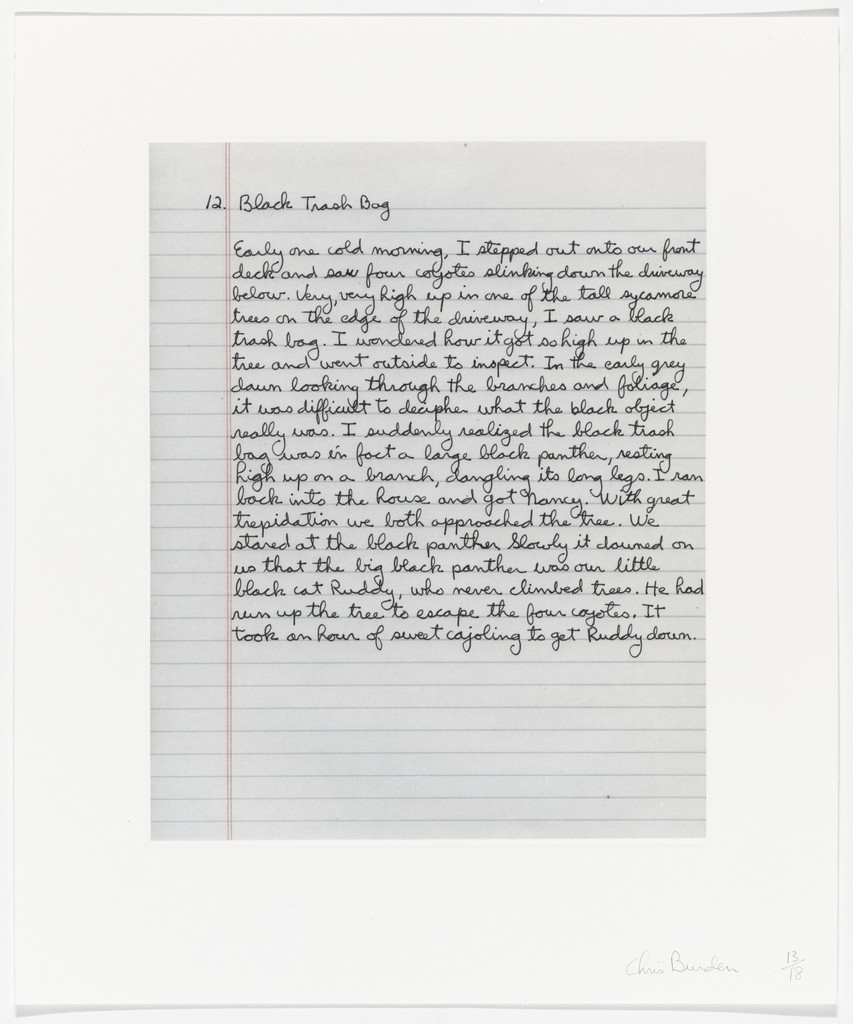 12. Black Trash Bag
Early one cold morning, I stepped out onto our front
deck and saw four coyotes slinking down the driveway
below. Very, very high up in one of the tall sycamore
trees on the edge of the driveway, I saw a black
trash bag. I wondered how it got so high up in the
tree and went outside to inspect. In the early grey
dawn looking through the branches and foliage,
it was difficult to decipher what the black object
really was. I suddenly realized the black trash
bag was in fact a large black panther, resting
high up on a branch, dangling its long legs. I ran
back into the house and got Nancy. With great
trepidation we both approached the tree. We
stared at the black panther. Slowly it dawned on
us that the big black panther was our little
black cat Ruddy, who never climbed trees. He had
run up the tree to escape the four coyotes. It
took an hour of sweet cajoling to get Ruddy down.
Chris Burden 13/18